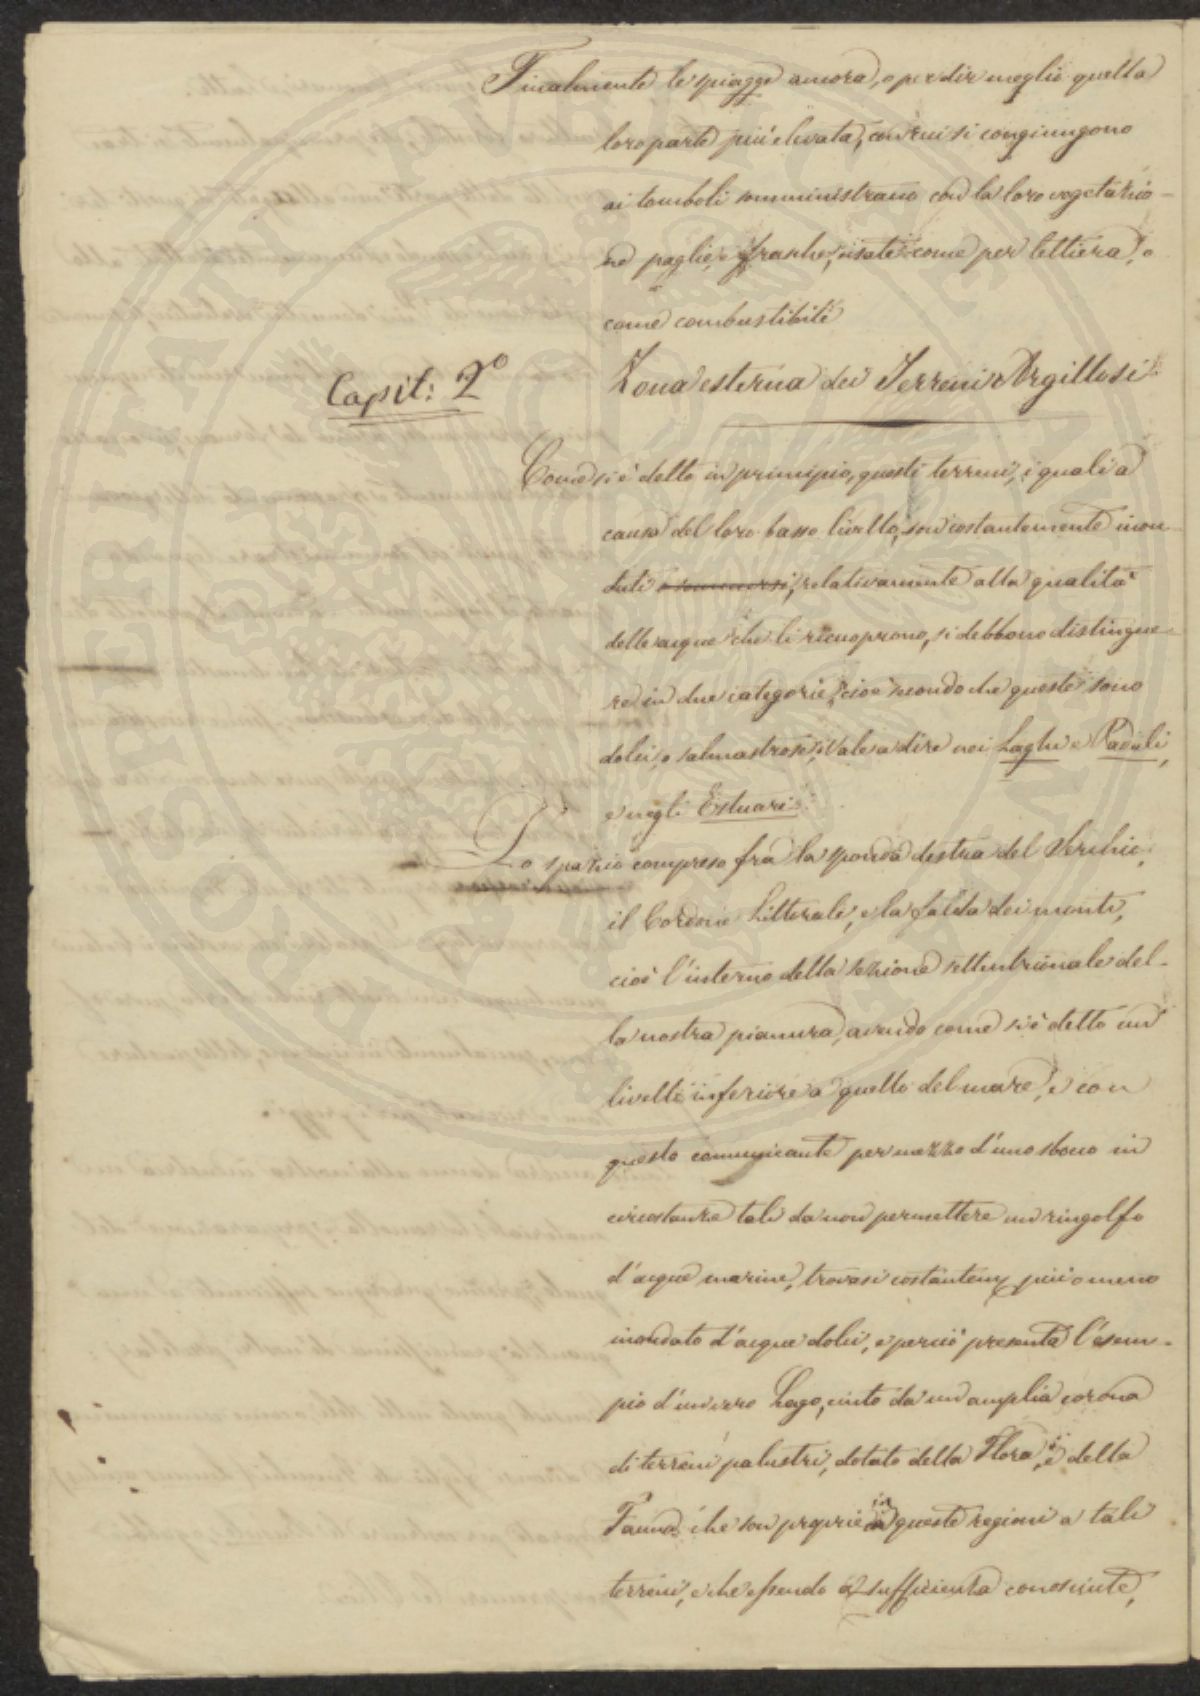 Finalmente le spiagge ancora, o per dir meglio quella
loro parte più elevata, con cui si congiungono
ai tomboli somministrano con la loro vegetazio-
ne paglie, e frasche, usate come per lettiera, o
come combustibile
Capit: 2°
Zona esterna dei Terreni Argillosi
Come si è detto in principio, questi terreni, i quali a
causa del loro basso livello, son costantemente inon-
dati o sommersi, relativamente alla qualità
delle acque che li ricuoprono, si debbono distingue-
re in due categorie, cioè secondo che queste sono
dolci, o salmastrose, vale a dire nei Laghi e Paduli,
e negli Estuari.
Lo spazio compreso fra la sponda destra del Serchio,
il Cordone Littorale, e la falda dei monti,
cioè l'interno della sezione settentrionale del-
la nostra pianura, avendo come si è detto un
livello inferiore a quello del mare, e con
questo comunicante per mezzo d'uno sbocco in
circostanze tali da non permettere un ringolfo
d'acque marine, trovasi costantem. più o meno
inondato d'acque dolci, e perciò presenta l'esem-
pio d'un vero Lago, cinto da un amplia corona
di terreni palustri, dotato della Flora, e della
Fauna che son proprie in queste regioni a tali
terreni, e che essendo a sufficienza conosciute,